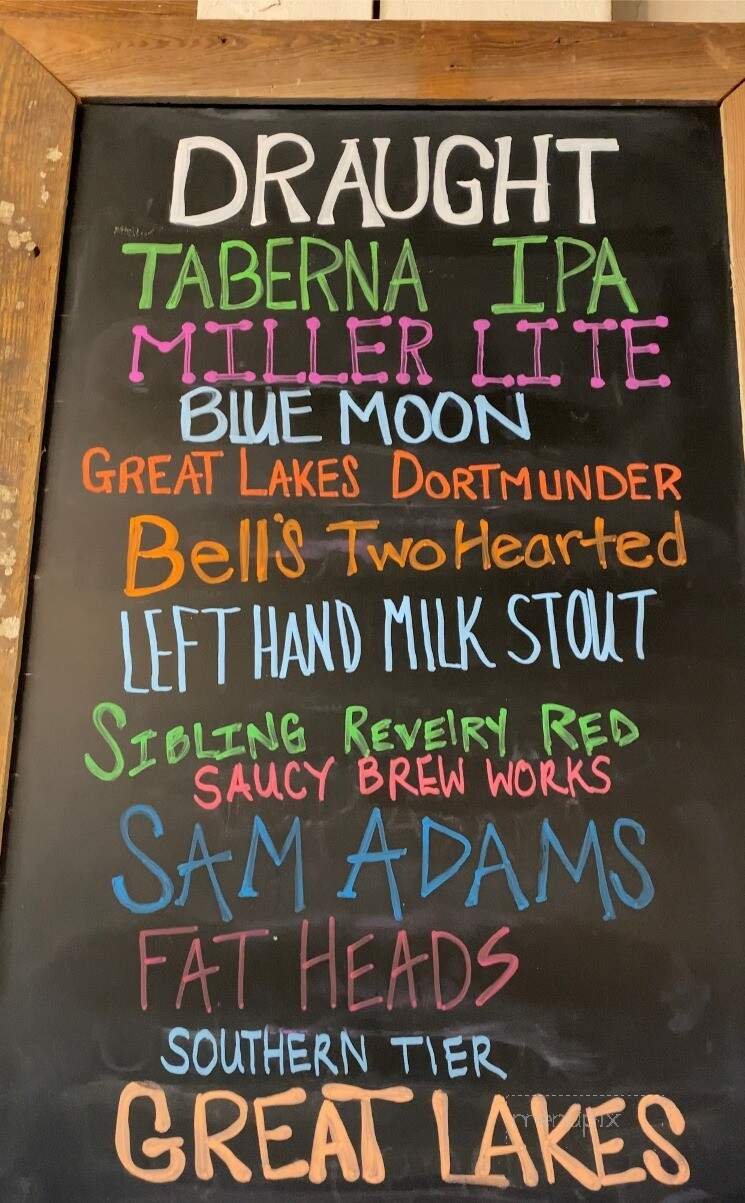 DRAUGHT
TABERNA IPA
MILLER LITE
BLUE MOON
GREAT LAKES DORTMUNDER
Bell's Two Hearted
LEFT HAND MILK STOUT
SIBLING REVElRY RED
SAUCY BREW WORKS
SAM ADAMS
FAT HEADS
SOUTHERN TIER
GREAT LAKES
menupix